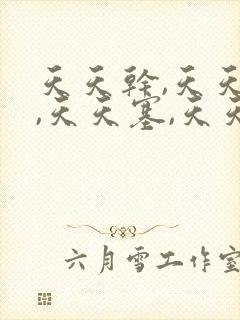 天天幹,天天
,天天塞,天天
六月雪工作室